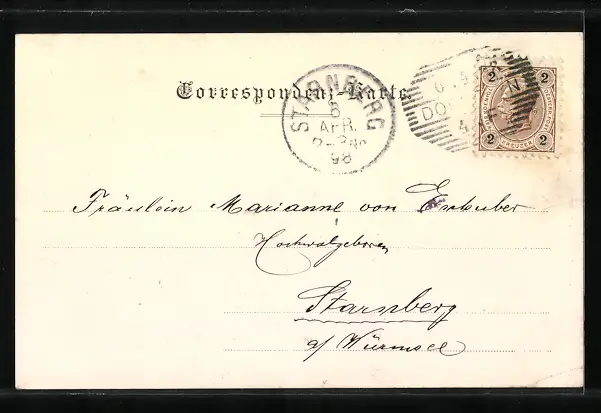 Correspondenz-Karte.
STARNBERG
6
APR.
98
2 2
KREUZER
2 2
Fräulein Marianne von
Hochwolgeboren
Starnberg
a/ Würmsee